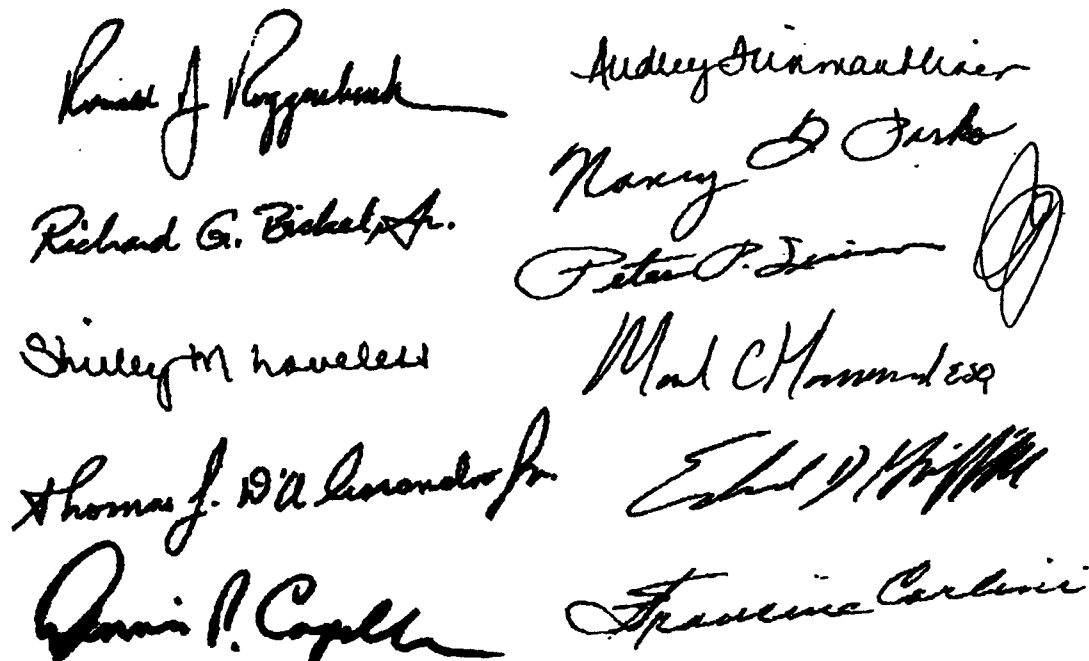 Ronald J Roggenbuck
Richard G. Bickel, Jr.
Shirley M Loveless
Thomas J. D'Alesandro Jr.
Dennis P. Cap
Audley
Nancy D. Parko
Peter P.
Mark C Hammond ESQ
D Griffith
Francine Carlini